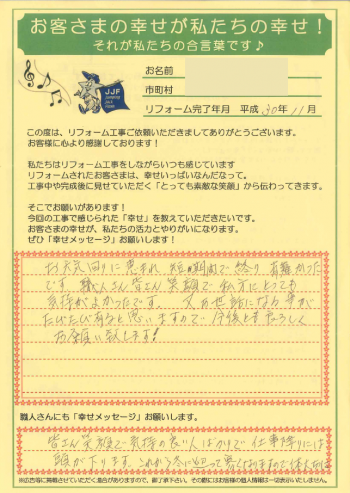 お客さまの幸せが私たちの幸せ!
それが私たちの合言葉です♪
JJF
お名前
市町村
リフォーム完了年月 平成 30年 11月
この度は、リフォーム工事ご依頼いただきましてありがとうございます。
お客様に心より感謝しております!
私たちはリフォーム工事をしながらいつも感じています
リフォームされたお客さまは、幸せいっぱいなんだなって。
工事中や完成後に見せていただく「とっても素敵な笑顔」から伝わってきます。
そこでお願いがあります!
今回の工事で感じられた「幸せ」を教えていただきたいです。
お客さまの幸せが、私たちの活力とやりがいになります。
ぜひ「幸せメッセージ」お願いします!
お天気回りに恵まれ、短期間で終り 有難かった
です。職人さん皆さん笑顔で 私方にとっても
気持がよかったです。 又お世話になる事が
たびたび有ると思いますので 今後とも よろしく
お願い致します!
職人さんにも「幸せメッセージ」お願いします。
皆さん笑顔で気持の良い人ばかりで 仕事降りには
頭が下ります。これから冬に向って寒くなりますので
※広告等に掲載させていただく場合がありますので、御了承下さい。その際にはお客様の個人情報は一切表示いたしません。